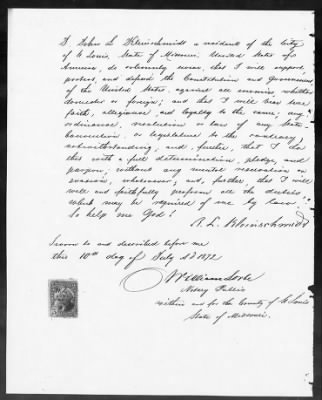 I John L Kleinschmidt a resident of the City
of St Louis, State of Missouri, United States of
America, do solemnly swear, that I will support,
protect, and defend the Constitution and Government
of the United States, against all enemies, whether
domestic or foreign; and that I will bear true
faith, allegiance and loyalty to the same; any
ordinance, resolution or law of any State,
Convention, or legislature to the contrary
notwithstanding; and further, that I do
this with a full determination, pledge, and
purpose, without any mental reservation or
evasion, whatsoever; and, further that I will
well and faithfully perform all the duties
which may be required of me by law.
So help me God!
Kleinschmidt
Sworn to and subscribed before me
this 10th day of July A D 1872
William
Notary Public
within and for the County of St Louis
State of Missouri.